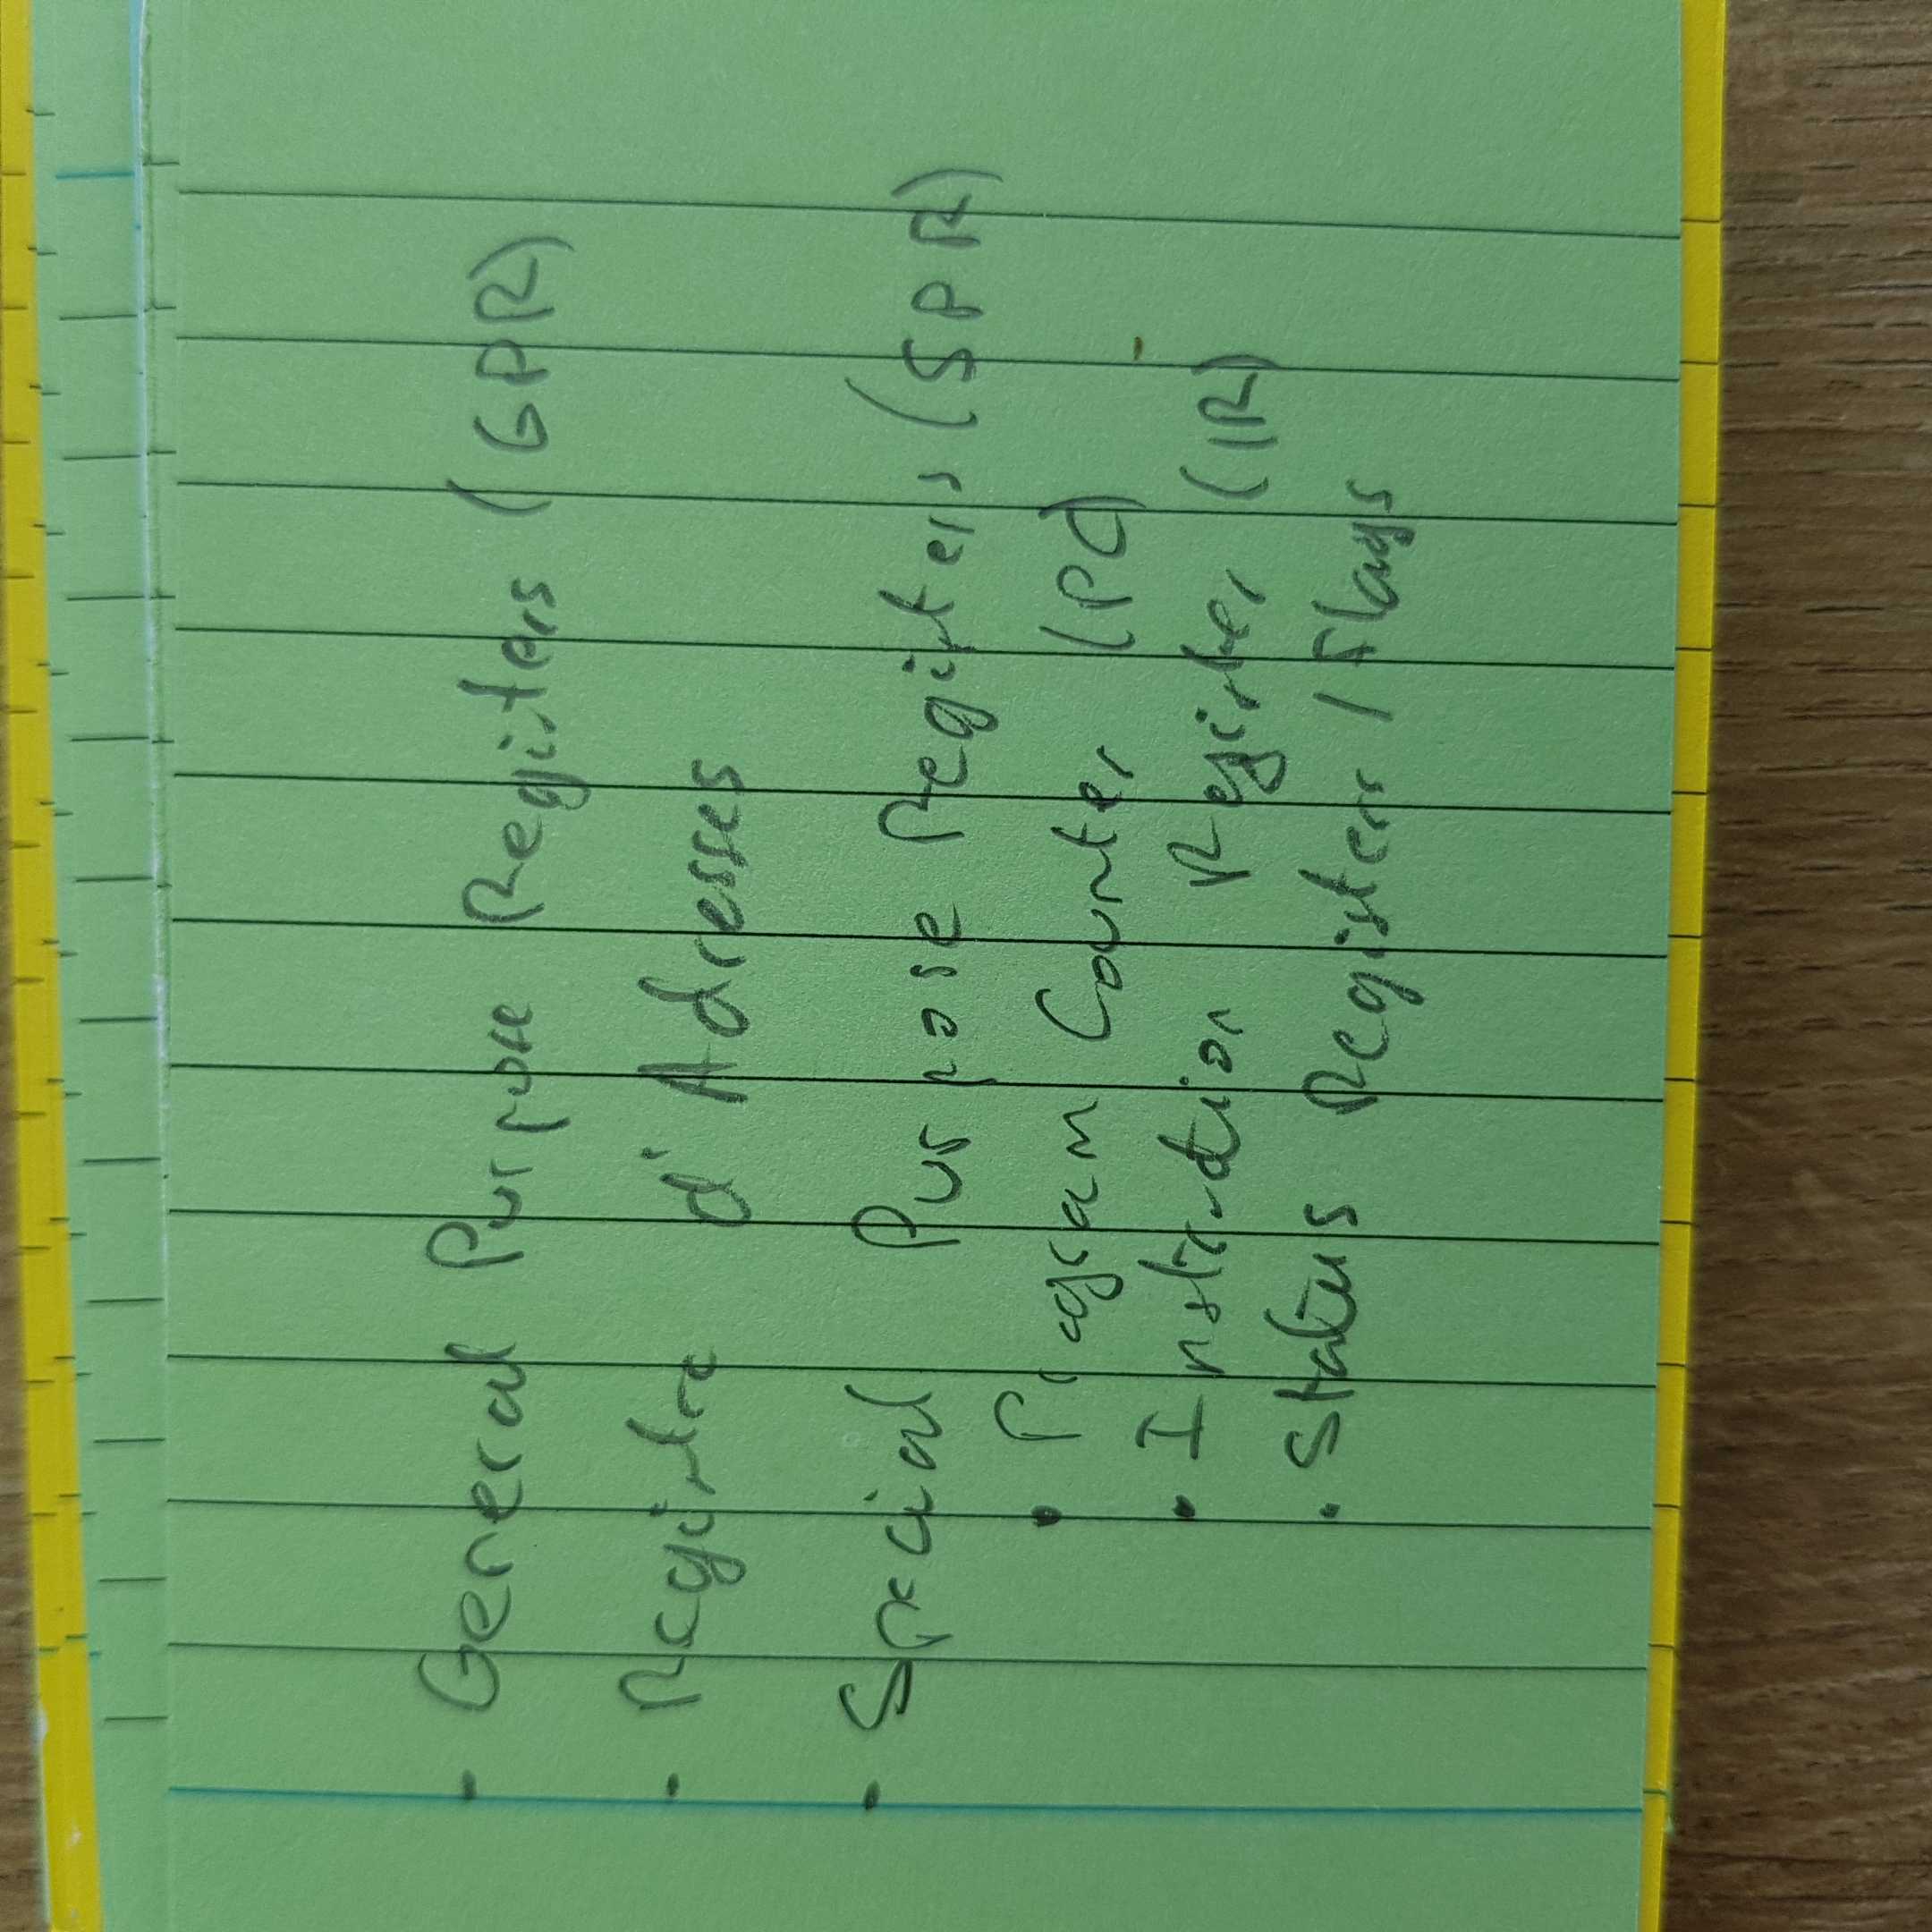 • General Purpose Registers (GPR)
• Registre d'Adresses
• Special Purpose Registers (SPR)
• Program Counter (PC)
• Instruction Register (IR)
• Status Registers / Flags